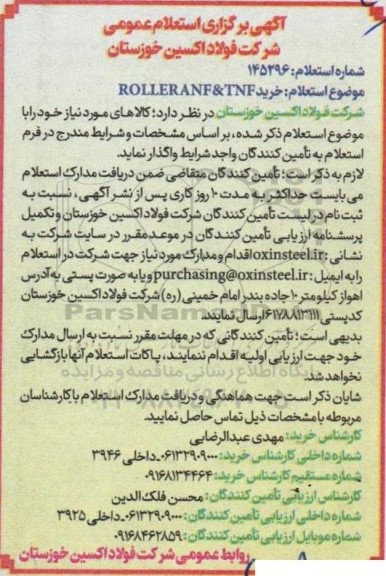 آگهی برگزاری استعلام عمومی
شرکت فولاد اکسین خوزستان
شماره استعلام: ۱۴۵۲۹۶
موضوع استعلام: خرید ROLLERANF&TNF
شرکت فولاد اکسین خوزستان در نظر دارد؛ کالاهای مورد نیاز خود را با
موضوع استعلام ذکر شده، بر اساس مشخصات و شرایط مندرج در فرم
استعلام به تأمین کنندگان واجد شرایط واگذار نماید.
لازم به ذکر است؛ تأمین کنندگان متقاضی ضمن دریافت مدارک استعلام
می بایست حداکثر به مدت ۱۰ روز کاری پس از نشر آگهی، نسبت به
ثبت نام در لیست تأمین کنندگان شرکت فولاد اکسین خوزستان و تکمیل
پرسشنامه ارزیابی تأمین کنندگان در موعد مقرر در سایت شرکت به
نشانی: oxinsteel.ir اقدام و مدارک مورد نیاز جهت شرکت در استعلام
را به ایمیل: purchasing@oxinsteel.ir و یا به صورت پستی به آدرس
اهواز کیلومتر ۱۰ جاده بندر امام خمینی (ره) شرکت فولاد اکسین خوزستان
کدپستی ۶۱۷۸۸۱۳۱۱۱ ارسال نمایند.
بدیهی است؛ تأمین کنندگانی که در مهلت مقرر نسبت به ارسال مدارک
خود جهت ارزیابی اولیه اقدام ننمایند، پاکات استعلام آنها بازگشایی
نخواهد شد.
شایان ذکر است جهت هماهنگی و دریافت مدارک استعلام با کارشناسان
مربوطه با مشخصات ذیل تماس حاصل نمایید.
کارشناس خرید: مهدی عبدالرضایی
شماره داخلی کارشناس خرید: ۰۶۱۳۲۹۰۹۰۰۰-داخلی ۳۹۴۶
شماره مستقیم کارشناس خرید: ۰۹۱۶۸۱۳۴۴۶۴
کارشناس ارزیابی تأمین کنندگان: محسن فلک الدین
شماره داخلی ارزیابی تأمین کنندگان: ۰۶۱۳۲۹۰۹۰۰۰-داخلی ۳۹۲۵
شماره موبایل ارزیابی تأمین کنندگان: ۰۹۱۶۸۴۶۲۸۵۹
روابط عمومی شرکت فولاد اکسین خوزستان